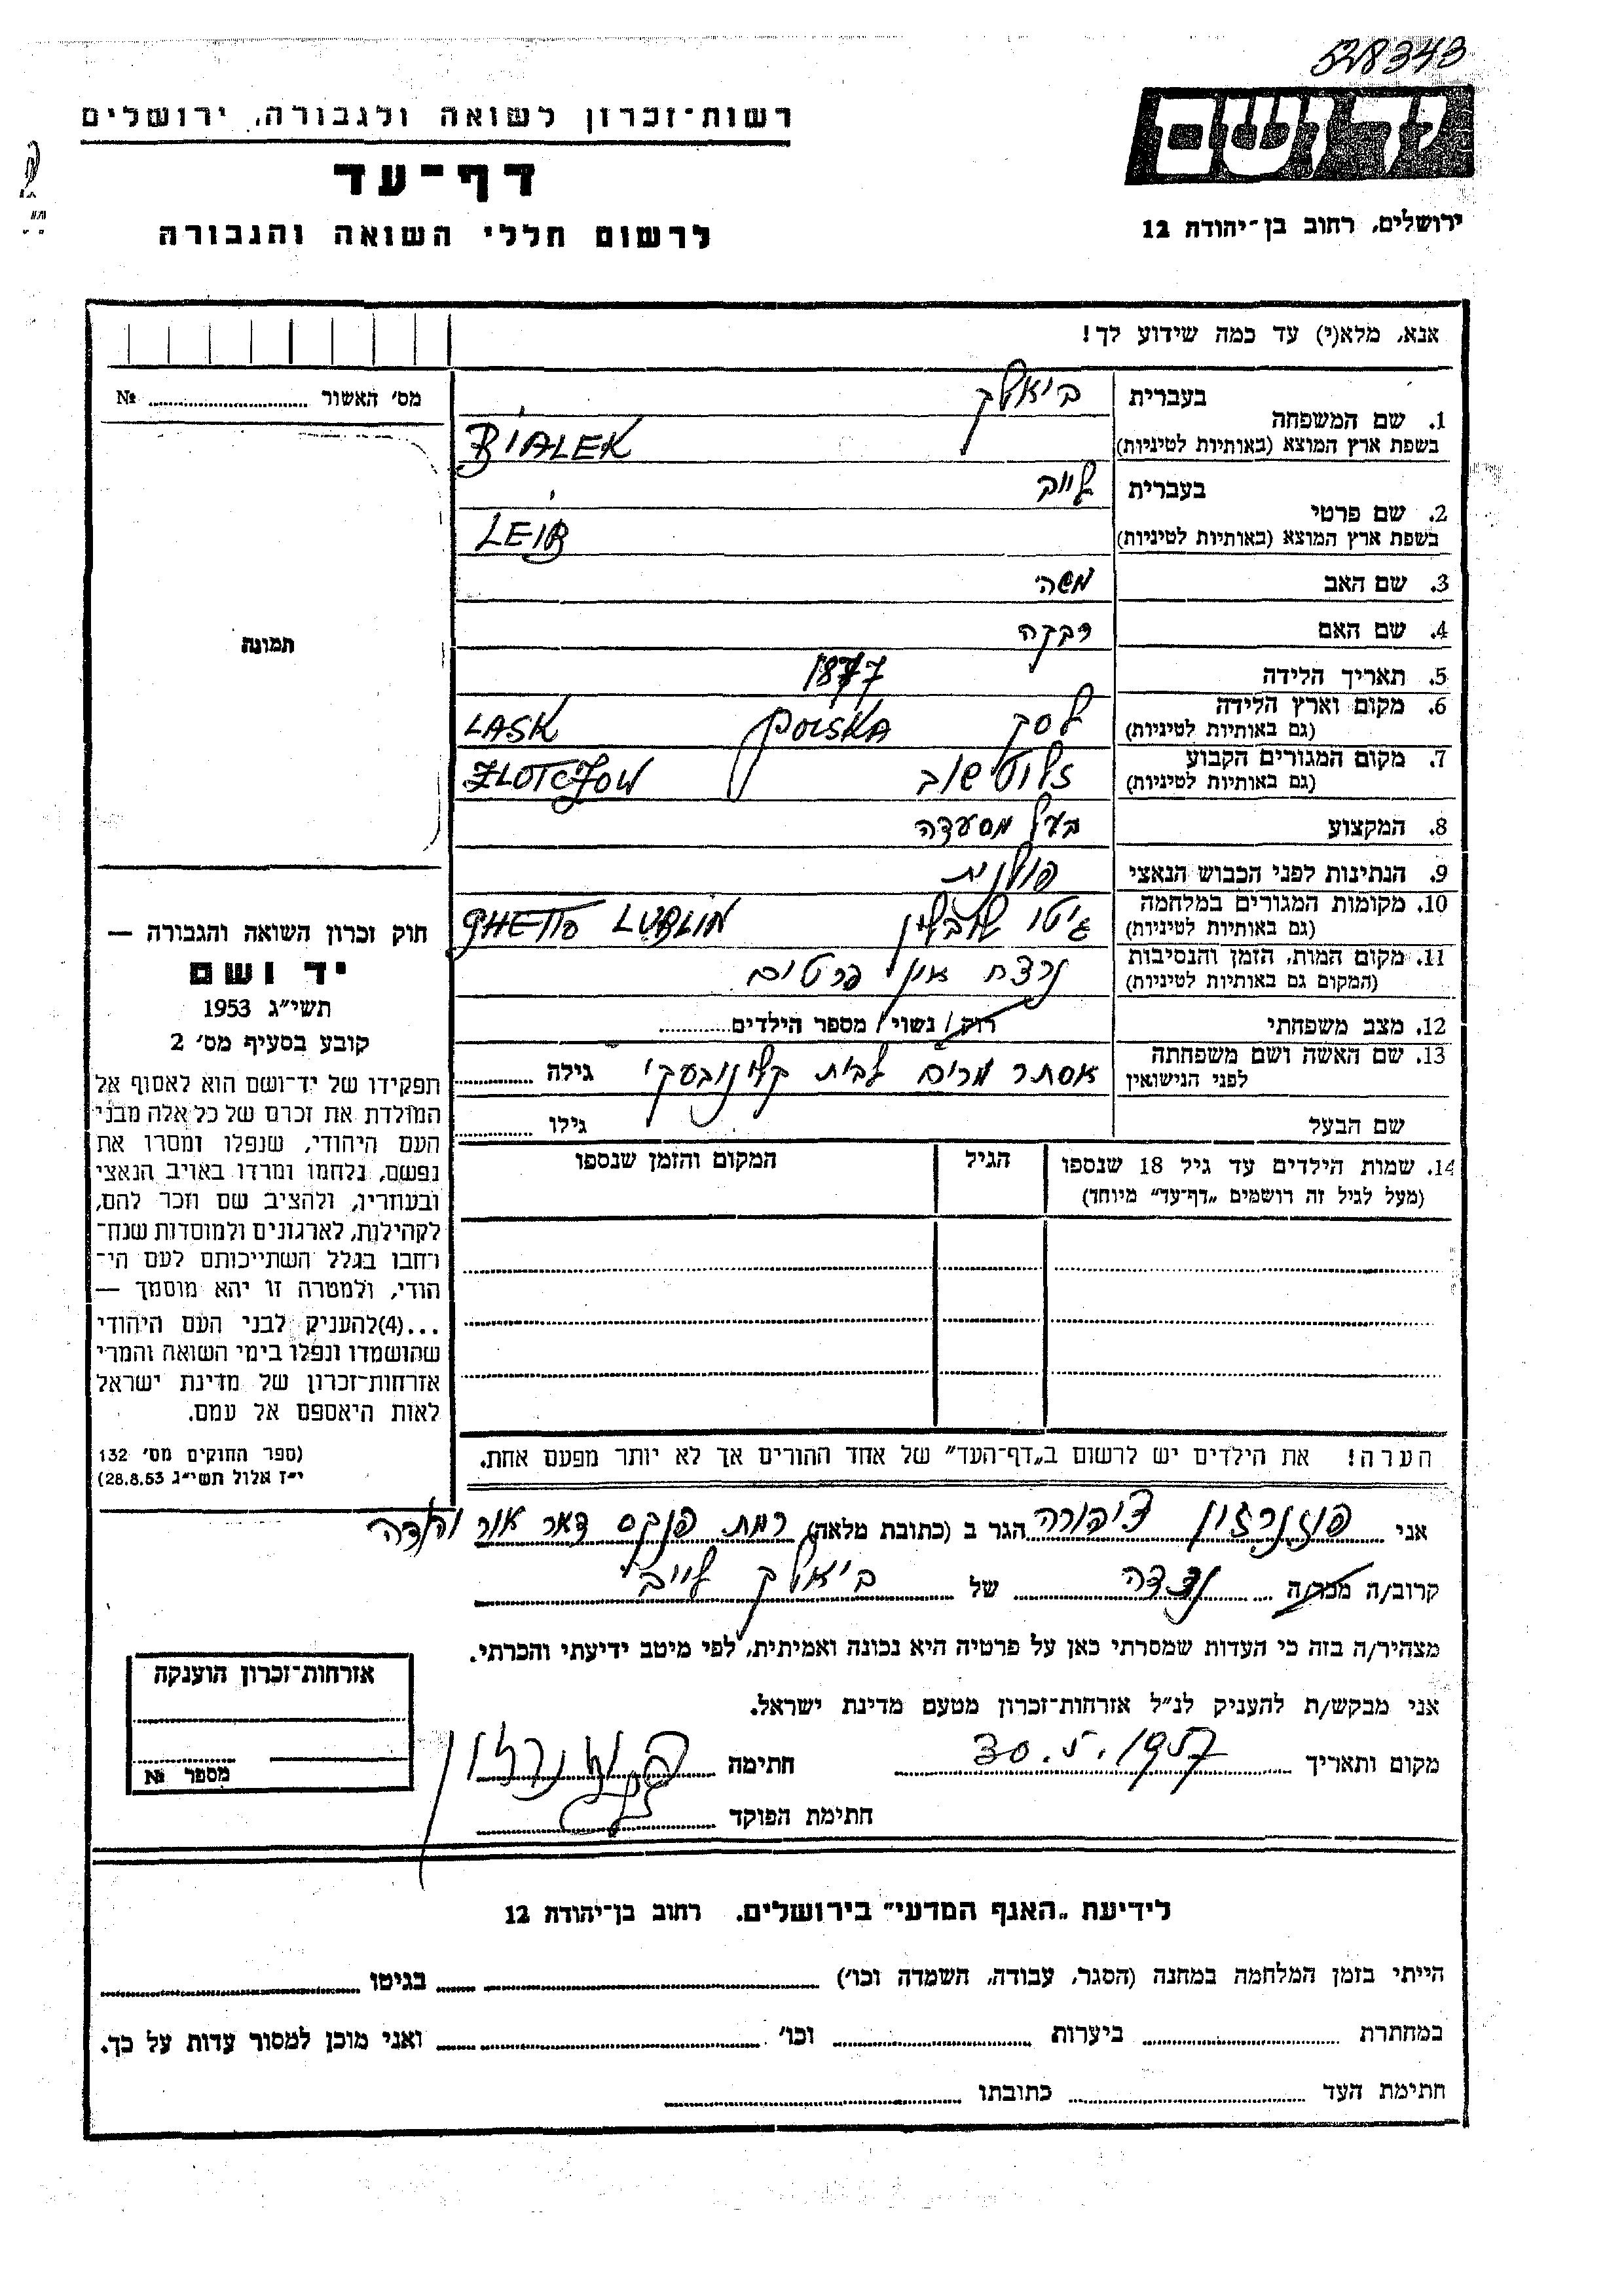 528343
יד ושם
ירושלים, רחוב בן־יהודה 12
רשות־זכרון לשואה ולגבורה, ירושלים
דף־עד
לרשום חללי השואה והגבורה
אנא, מלא(י) עד כמה שידוע לך!
1. שם המשפחה בעברית ביאלק
בשפת ארץ המוצא (באותיות לטיניות) BIALEK
2. שם פרטי בעברית לייב
בשפת ארץ המוצא (באותיות לטיניות) LEIB
3. שם האב משה
4. שם האם רבקה
5. תאריך הלידה 1877
6. מקום וארץ הלידה (גם באותיות לטיניות) לסק POLSKA LASK
7. מקום המגורים הקבוע (גם באותיות לטיניות) זלוטשוב ZLOTCZOW
8. המקצוע בעל מסעדה
9. הנתינות לפני הכבוש הנאצי פולנית
10. מקומות המגורים במלחמה (גם באותיות לטיניות) גיטו לובלין GHETTO LUBLIN
11. מקום המות, הזמן והנסיבות (המקום גם באותיות לטיניות) נרצח אין פרטים
12. מצב משפחתי רוק/ נשוי/ מספר הילדים
13. שם האשה ושם משפחתה לפני הנישואין אסתר מרים לבית גילה
שם הבעל גילו
14. שמות הילדים עד גיל 18 שנספו (מעל לגיל זה רושמים „דף־עד” מיוחד) הגיל המקום והזמן שנספו
הערה! את הילדים יש לרשום ב„דף־העד” של אחד ההורים אך לא יותר מפעם אחת.
מס' האשור №
תמונה
חוק זכרון השואה והגבורה —
יד ושם
תשי״ג 1953
קובע בסעיף מס' 2
תפקידו של יד־ושם הוא לאסוף אל
המולדת את זכרם של כל אלה מבני
העם היהודי, שנפלו ומסרו את
נפשם, נלחמו ומרדו באויב הנאצי
ובעוזריו, ולהציב שם וזכר להם,
לקהילות, לארגונים ולמוסדות שנח־
רחבו בגלל השתייכותם לעם הי־
הודי, ולמטרה זו יהא מוסמך —
...(4)להעניק לבני העם היהודי
שהושמדו ונפלו בימי השואה והמרי
אזרחות־זכרון של מדינת ישראל
לאות היאספם אל עמם.
(ספר החוקים מס' 132
י״ז אלול תשי״ג 28.8.53)
אני פוזנרזון ציפורה הגר ב (כתובת מלאה) רמת פנקס דאר אור יהודה
קרוב/ה מכר/ה נכדה של ביאלק לייב
מצהיר/ה בזה כי העדות שמסרתי כאן על פרטיה היא נכונה ואמיתית, לפי מיטב ידיעתי והכרתי.
אני מבקש/ת להעניק לנ״ל אזרחות־זכרון מטעם מדינת ישראל.
מקום ותאריך 30.5.1957 חתימה
חתימת הפוקד
אזרחות־זכרון הוענקה
מספר №
לידיעת „האגף המדעי” בירושלים, רחוב בן־יהודה 12
הייתי בזמן המלחמה במחנה (הסגר, עבודה, השמדה וכו') בגיטו
במחתרת ביערות וכו' ואני מוכן למסור עדות על כך.
חתימת העד כתובתו